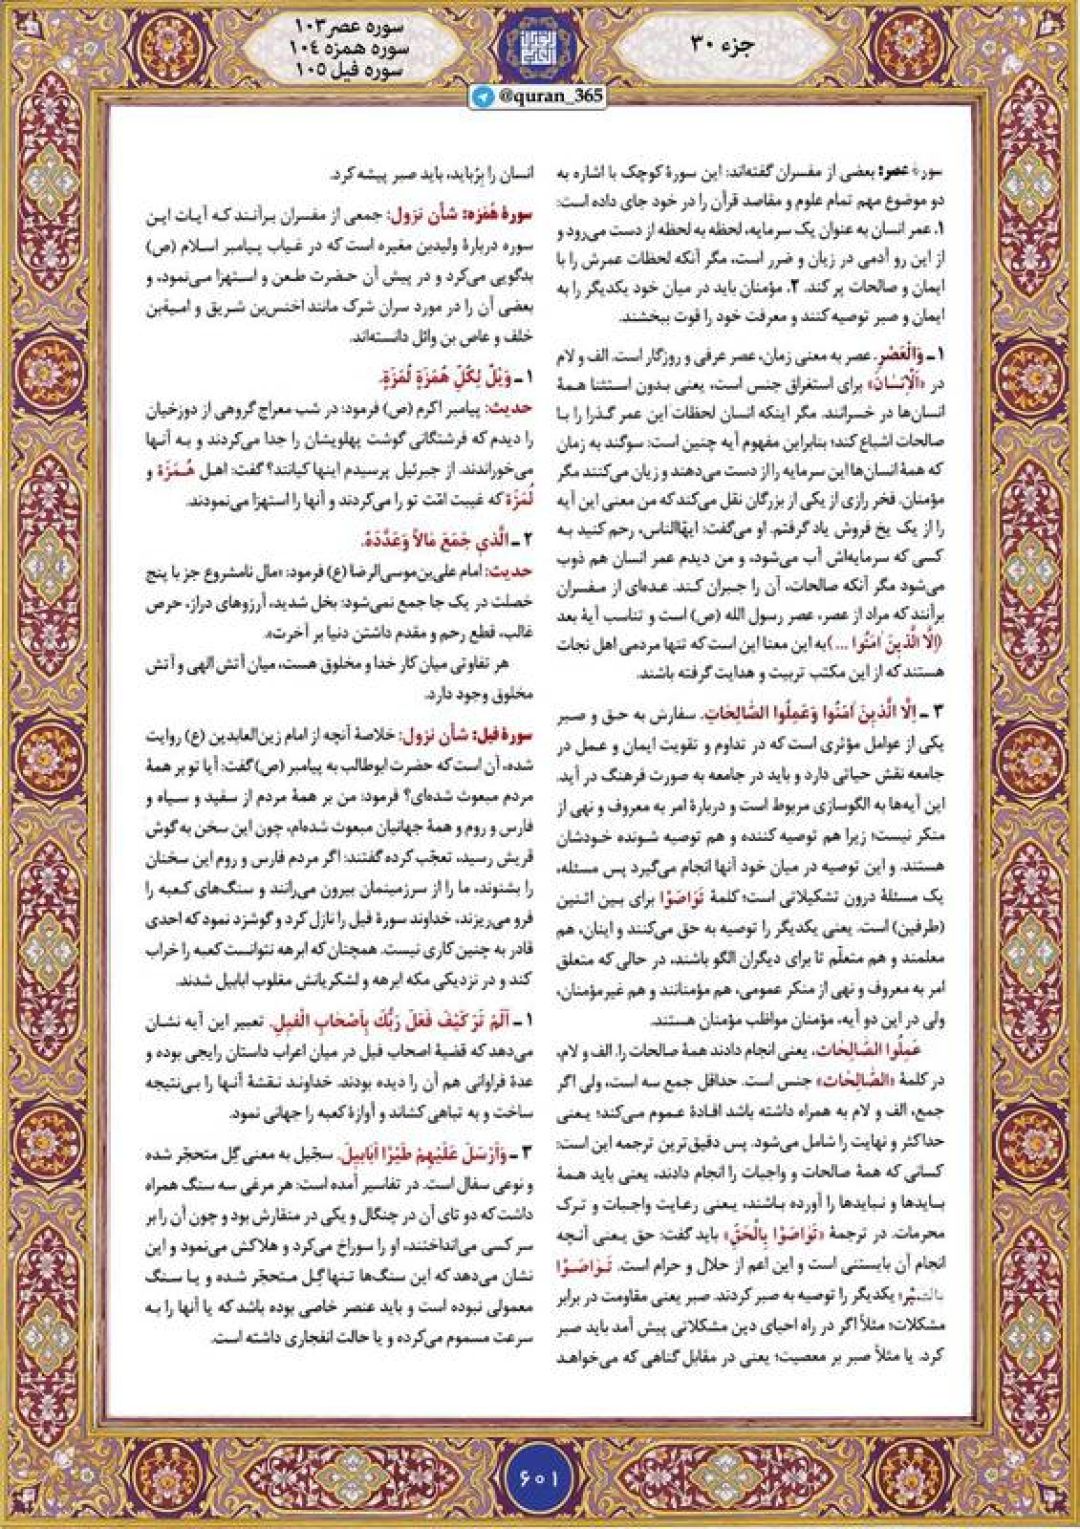 جزء ۳۰
سوره عصر ۱۰۳
سوره همزه ۱۰۴
سوره فیل ۱۰۵
@quran_365
سورهٔ عصر: بعضی از مفسران گفته‌اند: این سورهٔ کوچک با اشاره به
دو موضوع مهم تمام علوم و مقاصد قرآن را در خود جای داده است:
۱. عمر انسان به عنوان یک سرمایه، لحظه به لحظه از دست می‌رود و
از این رو آدمی در زیان و ضرر است، مگر آنکه لحظات عمرش را با
ایمان و صالحات پر کند. ۲. مؤمنان باید در میان خود یکدیگر را به
ایمان و صبر توصیه کنند و معرفت خود را قوت ببخشند.
۱ـ وَالْعَصْرِ. عصر به معنی زمان، عصر عرفی و روزگار است. الف و لام
در «اَلْاِنْسانَ» برای استغراق جنس است، یعنی بدون استثنا همهٔ
انسان‌ها در خسرانند. مگر اینکه انسان لحظات این عمر گذرا را با
صالحات اشباع کند؛ بنابراین مفهوم آیه چنین است: سوگند به زمان
که همهٔ انسان‌ها این سرمایه را از دست می‌دهند و زیان می‌کنند مگر
مؤمنان. فخر رازی از یکی از بزرگان نقل می‌کند که من معنی این آیه
را از یک یخ فروش یاد گرفتم. او می‌گفت: ایهّاالناس، رحم کنید به
کسی که سرمایه‌اش آب می‌شود، و من دیدم عمر انسان هم ذوب
می‌شود مگر آنکه صالحات، آن را جبران کند. عده‌ای از مفسران
برآنند که مراد از عصر، عصر رسول الله (ص) است و تناسب آیهٔ بعد
(اِلَّا الَّذینَ آمَنُوا ...) به این معنا این است که تنها مردمی اهل نجات
هستند که از این مکتب تربیت و هدایت گرفته باشند.
۳ـ اِلَّا الَّذینَ آمَنُوا وَعَمِلُوا الصَّالِحَاتِ. سفارش به حق و صبر
یکی از عوامل مؤثری است که در تداوم و تقویت ایمان و عمل در
جامعه نقش حیاتی دارد و باید در جامعه به صورت فرهنگ در آید.
این آیه‌ها به الگوسازی مربوط است و دربارهٔ امر به معروف و نهی از
منکر نیست؛ زیرا هم توصیه کننده و هم توصیه شونده خودشان
هستند. و این توصیه در میان خود آنها انجام می‌گیرد پس مسئله،
یک مسئلهٔ درون تشکیلاتی است؛ کلمهٔ تَوَاصَوْا برای بین اثنین
(طرفین) است. یعنی یکدیگر را توصیه به حق می‌کنند و اینان، هم
معلمند و هم متعلّم تا برای دیگران الگو باشند، در حالی که متعلق
امر به معروف و نهی از منکر عمومی، هم مؤمنانند و هم غیرمؤمنان،
ولی در این دو آیه، مؤمنان مواظب مؤمنان هستند.
عَمِلُوا الصَّالِحَاتِ. یعنی انجام دادند همهٔ صالحات را. الف و لام،
در کلمهٔ «الصَّالِحَات» جنس است. حداقل جمع سه است، ولی اگر
جمع، الف و لام به همراه داشته باشد افادهٔ عموم می‌کند؛ یعنی
حداکثر و نهایت را شامل می‌شود. پس دقیق‌ترین ترجمه این است:
کسانی که همهٔ صالحات و واجبات را انجام دادند، یعنی باید همهٔ
بایدها و نبایدها را آورده باشند، یعنی رعایت واجبات و ترک
محرمات. در ترجمهٔ «تَوَاصَوْا بِالْحَقِّ» باید گفت: حق یعنی آنچه
انجام آن بایستنی است و این اعم از حلال و حرام است. تَوَاصَوْا
بِالصَّبْرِ؛ یکدیگر را توصیه به صبر کردند. صبر یعنی مقاومت در برابر
مشکلات؛ مثلاً اگر در راه احیای دین مشکلاتی پیش آمد باید صبر
کرد. یا مثلاً صبر بر معصیت؛ یعنی در مقابل گناهی که می‌خواهد
انسان را برُباید، باید صبر پیشه کرد.
سورهٔ هُمَزه: شأن نزول: جمعی از مفسران برآنند که آیات این
سوره دربارهٔ ولیدبن مغیره است که در غیاب پیامبر اسلام (ص)
بدگویی می‌کرد و در پیش آن حضرت طعن و استهزا می‌نمود، و
بعضی آن را در مورد سران شرک مانند اخنس‌بن شریق و امیه‌بن
خلف و عاص بن وائل دانسته‌اند.
۱ـ وَیْلٌ لِکُلِّ هُمَزَةٍ لُمَزَةٍ.
حدیث: پیامبر اکرم (ص) فرمود: در شب معراج گروهی از دوزخیان
را دیدم که فرشتگانی گوشت پهلویشان را جدا می‌کردند و به آنها
می‌خوراندند. از جبرئیل پرسیدم اینها کیانند؟ گفت: اهل هُمَزَة و
لُمَزَة که غیبت امّت تو را می‌کردند و آنها را استهزا می‌نمودند.
۲ـ الَّذی جَمَعَ مَالاً وَعَدَّدَهُ.
حدیث: امام علی‌بن‌موسی‌الرضا (ع) فرمود: «مال نامشروع جز با پنج
خصلت در یک جا جمع نمی‌شود: بخل شدید، آرزوهای دراز، حرص
غالب، قطع رحم و مقدم داشتن دنیا بر آخرت».
هر تفاوتی میان کار خدا و مخلوق هست، میان آتش الهی و آتش
مخلوق وجود دارد.
سورهٔ فیل: شأن نزول: خلاصهٔ آنچه از امام زین‌العابدین (ع) روایت
شده، آن است که حضرت ابوطالب به پیامبر (ص) گفت: آیا تو بر همهٔ
مردم مبعوث شده‌ای؟ فرمود: من بر همهٔ مردم از سفید و سیاه و
فارس و روم و همهٔ جهانیان مبعوث شده‌ام، چون این سخن به گوش
قریش رسید، تعجّب کرده گفتند: اگر مردم فارس و روم این سخنان
را بشنوند، ما را از سرزمینمان بیرون می‌رانند و سنگ‌های کعبه را
فرو می‌ریزند، خداوند سورهٔ فیل را نازل کرد و گوشزد نمود که احدی
قادر به چنین کاری نیست. همچنان که ابرهه نتوانست کعبه را خراب
کند و در نزدیکی مکه ابرهه و لشکریانش مغلوب ابابیل شدند.
۱ـ اَلَمْ تَرَ کَیْفَ فَعَلَ رَبُّكَ بِاَصْحَابِ الْفیلِ. تعبیر این آیه نشان
می‌دهد که قضیهٔ اصحاب فیل در میان اعراب داستان رایجی بوده و
عدهٔ فراوانی هم آن را دیده بودند. خداوند نقشهٔ آنها را بی‌نتیجه
ساخت و به تباهی کشاند و آوازهٔ کعبه را جهانی نمود.
۳ـ وَاَرْسَلَ عَلَیْهِمْ طَیْرًا اَبَابیلَ. سجّیل به معنی گِل متحجّر شده
و نوعی سفال است. در تفاسیر آمده است: هر مرغی سه سنگ همراه
داشت که دو تای آن در چنگال و یکی در منقارش بود و چون آن را بر
سر کسی می‌انداختند، او را سوراخ می‌کرد و هلاکش می‌نمود و این
نشان می‌دهد که این سنگ‌ها تنها گِل متحجّر شده و یا سنگ
معمولی نبوده است و باید عنصر خاصی بوده باشد که یا آنها را به
سرعت مسموم می‌کرده و یا حالت انفجاری داشته است.
۶۰۱